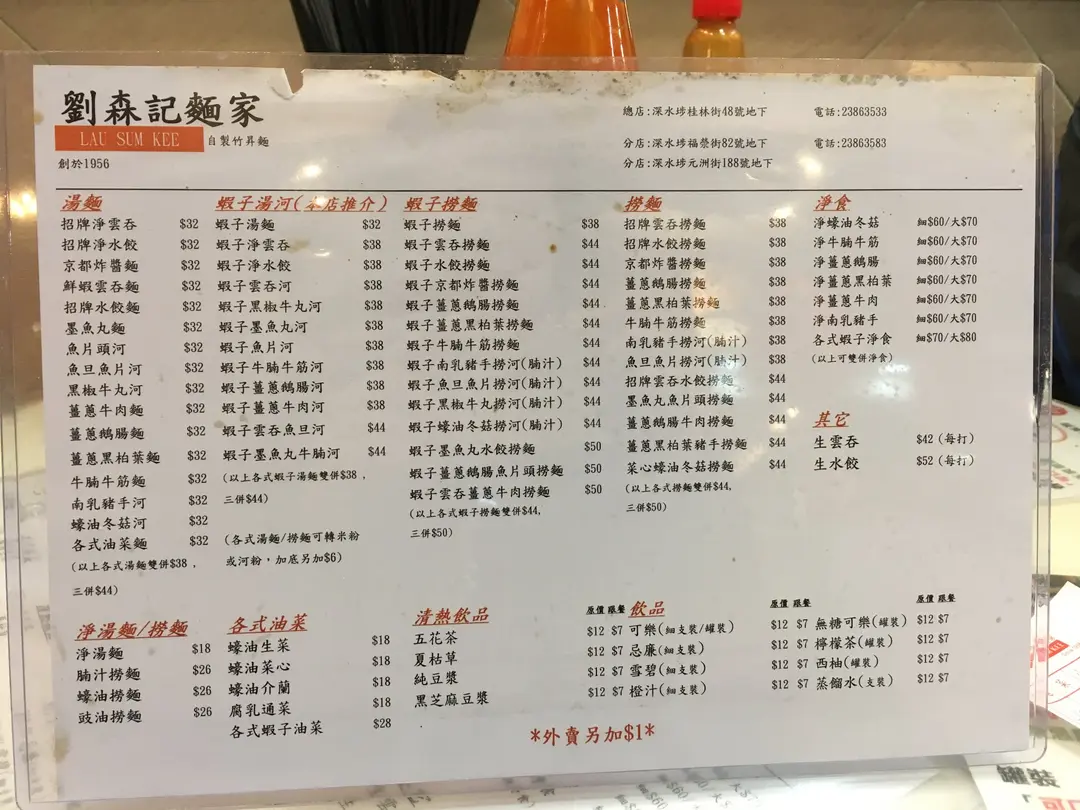 劉森記麵家
LAU SUM KEE 自製竹昇麵
創於1956
總店:深水埗桂林街48號地下 電話:23863533
分店:深水埗福榮街82號地下 電話:23863583
分店:深水埗元洲街188號地下
湯麵
招牌淨雲吞 $32
招牌淨水餃 $32
京都炸醬麵 $32
鮮蝦雲吞麵 $32
招牌水餃麵 $32
墨魚丸麵 $32
魚片頭河 $32
魚旦魚片河 $32
黑椒牛丸河 $32
薑蔥牛肉麵 $32
薑蔥鵝腸麵 $32
薑蔥黑柏葉麵 $32
牛腩牛筋麵 $32
南乳豬手河 $32
蠔油冬菇河 $32
各式油菜麵 $32
(以上各式湯麵雙併$38，
三併$44)
蝦子湯河(本店推介)
蝦子湯麵 $32
蝦子淨雲吞 $38
蝦子淨水餃 $38
蝦子雲吞河 $38
蝦子黑椒牛丸河 $38
蝦子墨魚丸河 $38
蝦子魚片河 $38
蝦子牛腩牛筋河 $38
蝦子薑蔥鵝腸河 $38
蝦子薑蔥牛肉河 $38
蝦子雲吞魚旦河 $44
蝦子墨魚丸牛腩河 $44
(以上各式蝦子湯麵雙併$38，
三併$44)
(各式湯麵/撈麵可轉米粉
或河粉，加底另加$6)
蝦子撈麵
蝦子撈麵 $38
蝦子雲吞撈麵 $44
蝦子水餃撈麵 $44
蝦子京都炸醬撈麵 $44
蝦子薑蔥鵝腸撈麵 $44
蝦子薑蔥黑柏葉撈麵 $44
蝦子牛腩牛筋撈麵 $44
蝦子南乳豬手撈河(腩汁) $44
蝦子魚旦魚片撈河(腩汁) $44
蝦子黑椒牛丸撈河(腩汁) $44
蝦子蠔油冬菇撈河(腩汁) $44
蝦子墨魚丸水餃撈麵 $50
蝦子薑蔥鵝腸魚片頭撈麵 $50
蝦子雲吞薑蔥牛肉撈麵 $50
(以上各式蝦子撈麵雙併$44,
三併$50)
撈麵
招牌雲吞撈麵 $38
招牌水餃撈麵 $38
京都炸醬撈麵 $38
薑蔥鵝腸撈麵 $38
薑蔥黑柏葉撈麵 $38
牛腩牛筋撈麵 $38
南乳豬手撈河(腩汁) $38
魚旦魚片撈河(腩汁) $38
招牌雲吞水餃撈麵 $44
墨魚丸魚片頭撈麵 $44
薑蔥鵝腸牛肉撈麵 $44
薑蔥黑柏葉豬手撈麵 $44
菜心蠔油冬菇撈麵 $44
(以上各式撈麵雙併$44,
三併$50)
淨食
淨蠔油冬菇 細$60/大$70
淨牛腩牛筋 細$60/大$70
淨薑蔥鵝腸 細$60/大$70
淨薑蔥黑柏葉 細$60/大$70
淨薑蔥牛肉 細$60/大$70
淨南乳豬手 細$60/大$70
各式蝦子淨食 細$70/大$80
(以上可雙併淨食)
其它
生雲吞 $42(每打)
生水餃 $52(每打)
淨湯麵/撈麵
淨湯麵 $18
腩汁撈麵 $26
蠔油撈麵 $26
豉油撈麵 $26
各式油菜
蠔油生菜 $18
蠔油菜心 $18
蠔油介蘭 $18
腐乳通菜 $18
各式蝦子油菜 $28
清熱飲品 原價 跟餐
五花茶 $12 $7
夏枯草 $12 $7
純豆漿 $12 $7
黑芝麻豆漿 $12 $7
飲品 原價 跟餐 原價 跟餐
可樂(細支裝/罐裝) $12 $7 無糖可樂(罐裝) $12 $7
忌廉(細支裝) $12 $7 檸檬茶(罐裝) $12 $7
雪碧(細支裝) $12 $7 西柚(罐裝) $12 $7
橙汁(細支裝) $12 $7 蒸餾水(支裝) $12 $7
*外賣另加$1*